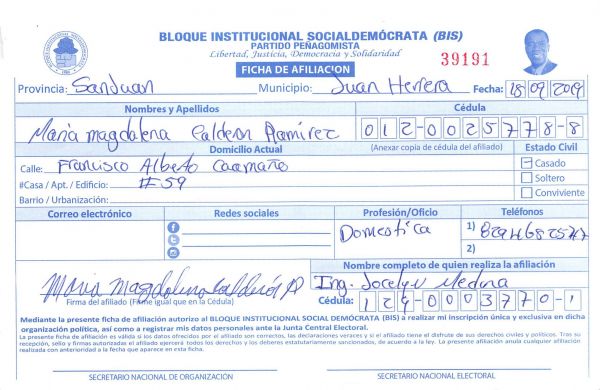 BLOQUE INSTITUCIONAL SOCIALDEMÓCRATA (BIS)
PARTIDO PEÑAGOMISTA
Libertad, Justicia, Democracia y Solidaridad
39191
FICHA DE AFILIACION
Provincia: San Juan Municipio: Juan Herrera Fecha: 18/09/2019
Nombres y Apellidos Cédula
Maria magdalena Calderon Ramirez 012-0025778-8
Domicilio Actual (Anexar copia de cédula del afiliado) Estado Civil
Calle: Francisco Alberto Caamaño Casado
#Casa / Apt. / Edificio: #59 Soltero
Barrio / Urbanización: Conviviente
Correo electrónico Redes sociales Profesión/Oficio Teléfonos
Domestica 1)
2)
Nombre completo de quien realiza la afiliación
Maria Magdalena Calderón R Ing. Jocelyn Medina
Firma del afiliado (Firme igual que en la Cédula) Cédula: 124-0003770-1
Mediante la presente ficha de afiliación autorizo al BLOQUE INSTITUCIONAL SOCIAL DEMÓCRATA (BIS) a realizar mi inscripción única y exclusiva en dicha
organización política, así como a registrar mis datos personales ante la Junta Central Electoral.
La presente ficha de afiliación es válida si los datos ofrecidos por el afiliado son correctos, las declaraciones veraces y si el afiliado tiene el disfrute de sus derechos civiles y políticos. Tras su
recepción, sello y firmas autorizadas el afiliado ejercerá todos los derechos y le deberes estatutariamente sancionados, de acuerdo a la ley. La presente afiliación anula cualquier afiliación
realizada con anterioridad a la fecha que aparece en esta ficha.
SECRETARIO NACIONAL DE ORGANIZACIÓN SECRETARIO NACIONAL ELECTORAL